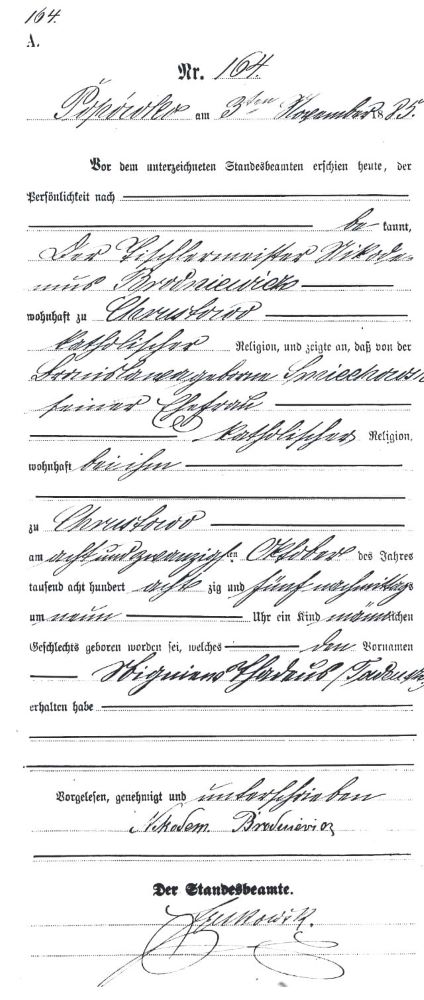 164.
A.
Nr. 164.
Popówko am 3ten November 1885.
Vor dem unterzeichneten Standesbeamten erschien heute, der
Persönlichkeit nach
be kannt,
der Tischlermeister Nikode=
mus Brodniewicz
wohnhaft zu Chrustowo
katholischer Religion, und zeigte an, daß von der
Bronislawa geborene
seiner Ehefrau
katholischer Religion,
wohnhaft bei ihm
zu Chrustowo
am acht und zwanzigsten Oktober des Jahres
tausend acht hundert acht zig und fünf nachmittags
um neun Uhr ein Kind männlichen
Geschlechts geboren worden sei, welches den Vornamen
Zbigniew Thadeus
erhalten habe
Vorgelesen, genehmigt und unterschrieben
Nikodem Brodniewicz
Der Standesbeamte.